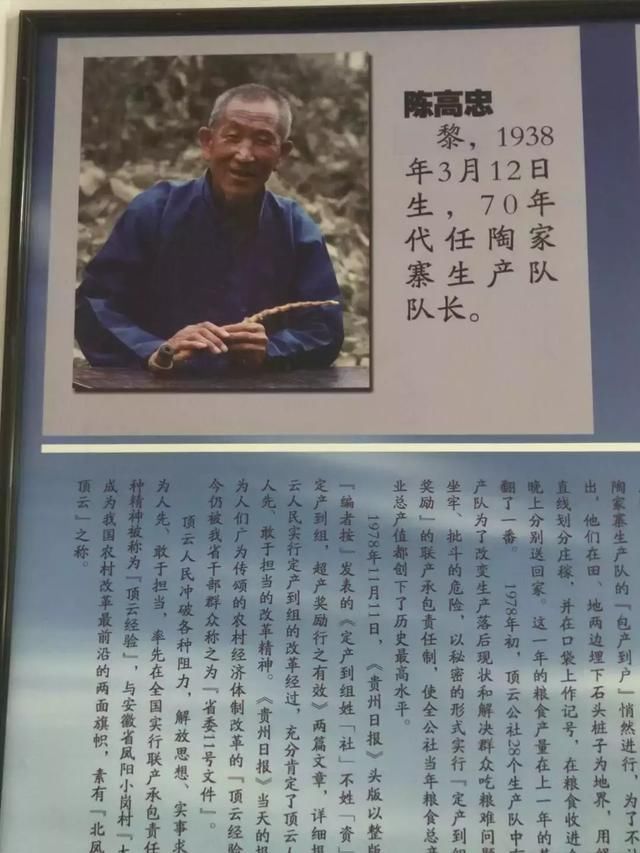 陈高忠
黎，1938
年3月12日
生，70年
代任陶家
寨生产队
队长。
陶家寨生产队的『包产到户』悄然进行，为了不
出，他们在田、地两边埋下石头桩子为地界，用
直线划分庄稼，并在口袋上作记号，在粮食收进
晚上分别送回家。这一年的粮食产量在上一年的
翻了一番。 1978年初，顶云公社28个生产队中有
产队为了改变生产落后现状和解决群众吃粮难问题
坐牢、批斗的危险，以秘密的形式实行『定产到组
奖励』的联产承包责任制，使全公社当年粮食总产
业总产值都创下了历史最高水平。
1978年11月11日，《贵州日报》头版以整版
『编者按』发表的《定产到组姓『社』不姓『资』
定产到组，超产奖励行之有效》两篇文章，详细报
云人民实行定产到组的改革经过，充分肯定了顶云人
人先、敢于担当的改革精神。《贵州日报》当天的报
为人们广为传颂的农村经济体制改革的『顶云经验
今仍被我省干部群众称之为『省委11号文件』。
顶云人民冲破各种阻力，解放思想、实事求
为人先、敢于担当，率先在全国实行联产承包责任
种精神被称为『顶云经验』，与安徽省凤阳小岗村『大
成为我国农村改革最前沿的两面旗帜，素有『北凤
顶云』之称。